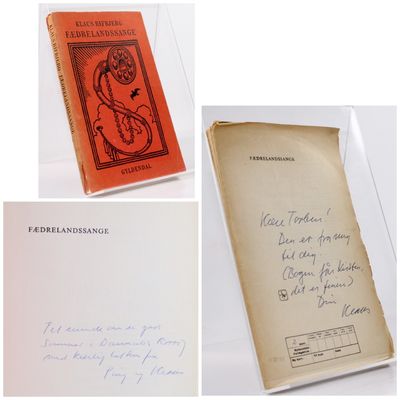 KLAUS RIFBJERG FÆDRELANDSSANGE
KLAUS RIFBJERG
FÆDRELANDSSANGE
GYLDENDAL
FÆDRELANDSSANGE
Kære Torben!
Den er fra mig
til dig.
(Bogen får Kirsten,
det er finere)
Din Klaus
FÆDRELANDSSANGE
Til minde om de gode
Sommer i Danmarks
med kærlig hilsen fra
og Klaus